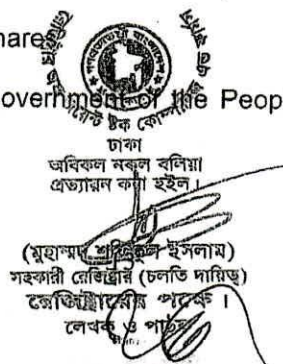 hare
overnment of the Peop
ঢাকা
অবিকল নকল বলিয়া
প্রত্যায়ন করা হইল।
(মুহাম্মদ ইসলাম)
সহকারী রেজিষ্ট্রার (চলতি দায়িত্ব)
রেজিষ্ট্রারের পক্ষে ।
লেখক ও